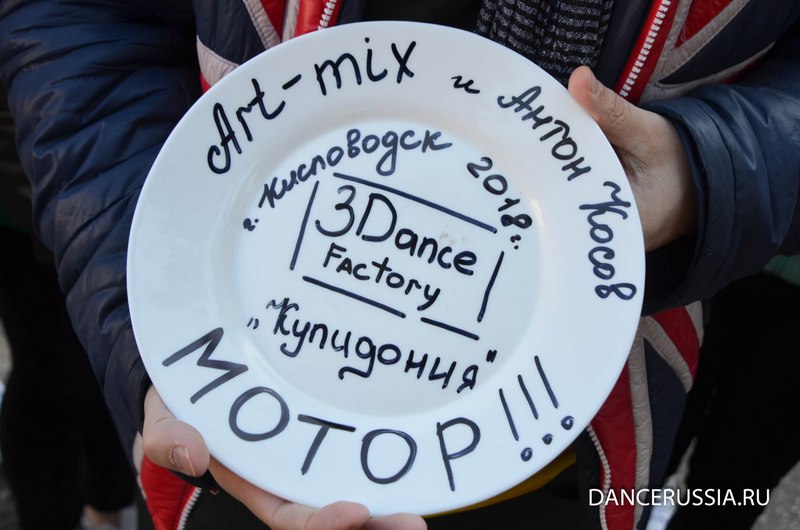 Art-mix и Антон Косов
г. Кисловодск 2018г.
3Dance
Factory
„Купидония"
МОТОР!!!
DANCERUSSIA.RU